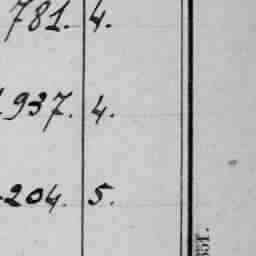 781. 4.
937. 4.
204. 5.
351.